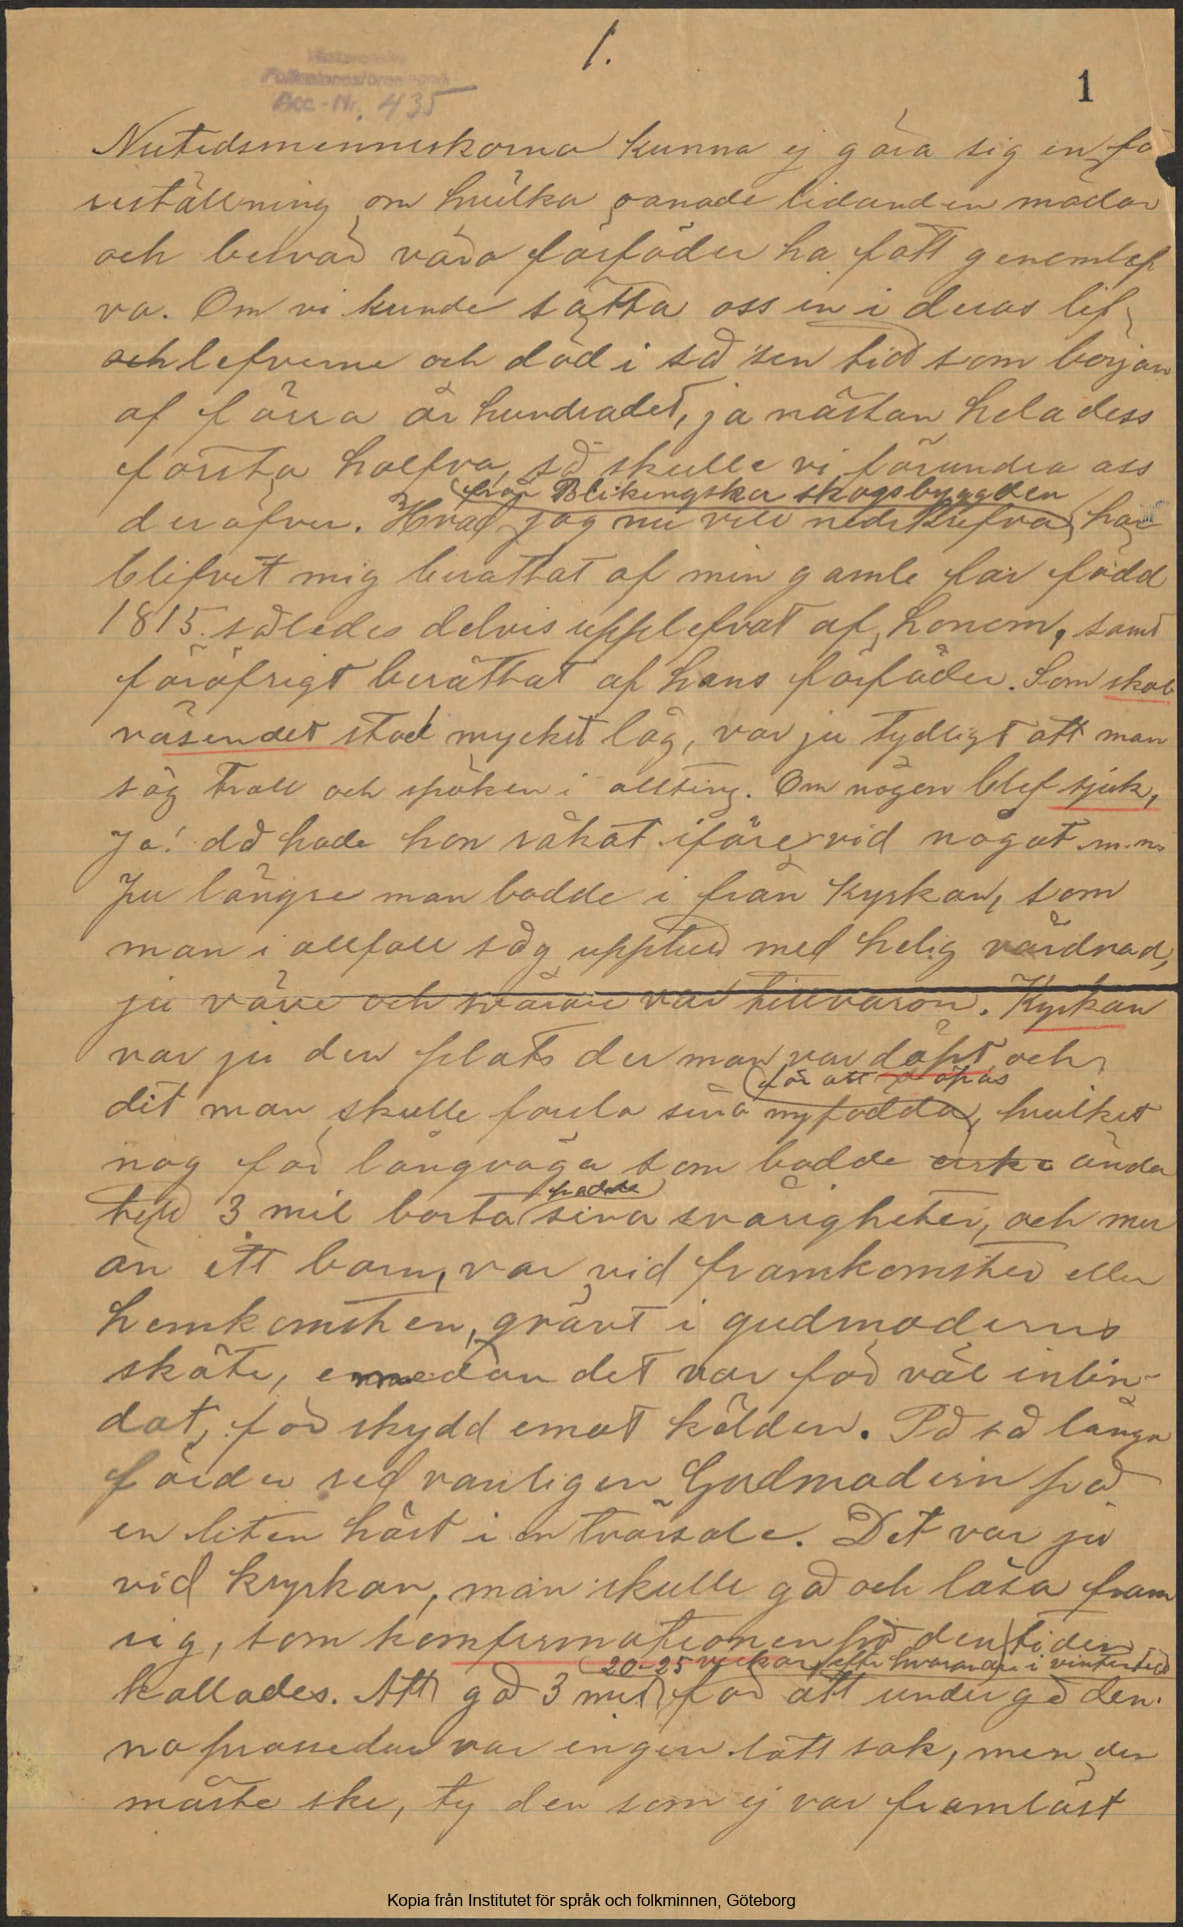 1.
1
Folkminnesföreningen
Acc.-Nr. 435
Nutidsmenniskorna kunna ej göra sig en fö
reställning om hvilka oanade lidanden mödor
och besvär våra förfäder ha fått genomlef
va. Om vi kunde sätta oss in i deras lif
och lefverne och död i så sen tid som början
af förra århundradet, ja nästan hela dess
första halfva, så skulle vi förundra oss
från Blekingska skogsbyggden
deröfver. Hvad jag nu vill nedskrifva, har
blifvit mig berättat af min gamle far född
1815. således delvis upplefvat af honom, samt
föröfrigt berättat af hans förfäder. Som skol
väsendet stod mycket låg, var ju tydligt att man
såg troll och spöken i allting. Om någon blef sjuk,
Ja! då hade hon råkat i före vid något m.m.
Ju längre man bodde i från Kyrkan, som
man i allfall såg upptill med helig vördnad,
ju värre och svårare var tillvaron. Kyrkan
var ju den plats der man var döpt och
för att döpas
dit man skulle forsla sina nyfödda, hvilket
nog för långväga som bodde cirka ända
hade
till 3 mil borta sina svårigheter, och mer
än ett barn, var vid framkomsten eller
hemkomsten, qvävt i gudmoderns
sköte, emedan det var för väl inlin-
dat, för skydd emot kölden. På så långa
färder red vanligen Gudmodern på
en liten häst i en tvärsale. Det var ju
vid kyrkan, man skulle gå och läsa fram
sig, som komfirmationen på den tiden
20-25 veckor efter hvarandra i vintertid
kallades. Att gå 3 mil för att undergå den.
na prossedur var ingen lätt sak, men den
måste ske, ty den som ej var framläst
Kopia från Institutet för språk och folkminnen, Göteborg